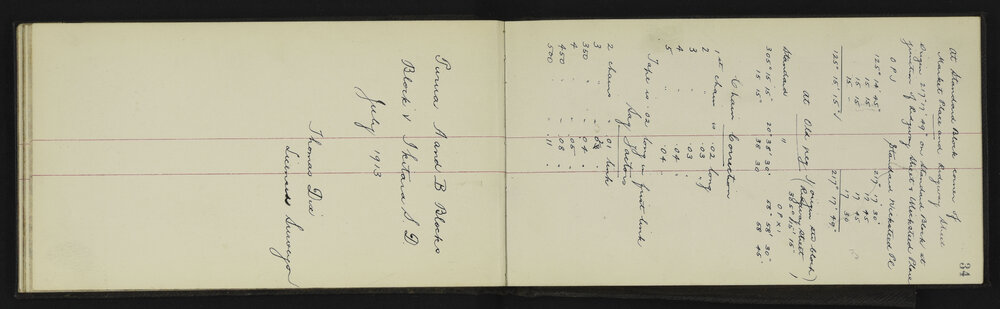 34
At Standard Block corner of
Market Place and Ridgway Street
Origin 217° 17' 49" on Standard Block at
junction of Ridgway Street & Wicksteed Place
O.P.S Standard Wicksteed Pl
125° 14' 45" 217° 17' 30"
15 15 17 45
15 15 17 45
15 17 30
125° 15' 15" 217° 17' 49"
At Old peg (origin std block)
Ridgway Street
Standard " O P X 1
305° 15' 15" 20° 38' 30" 58° 58' 30"
15 15 38 30 58 45
Chain Correction
1st chain is .02 long
2 " .03 "
3 .03
4 .04
5 .04
Tape is .02 long in first link
Sag Factors
2 chains .01 link
3 "
350 " .04 "
4 " .05 "
450 " .08 "
500 .11
Purua A and B Blocks
Block V Ikitara S D
July 1913
Thomas Dix
Licensed Surveyor